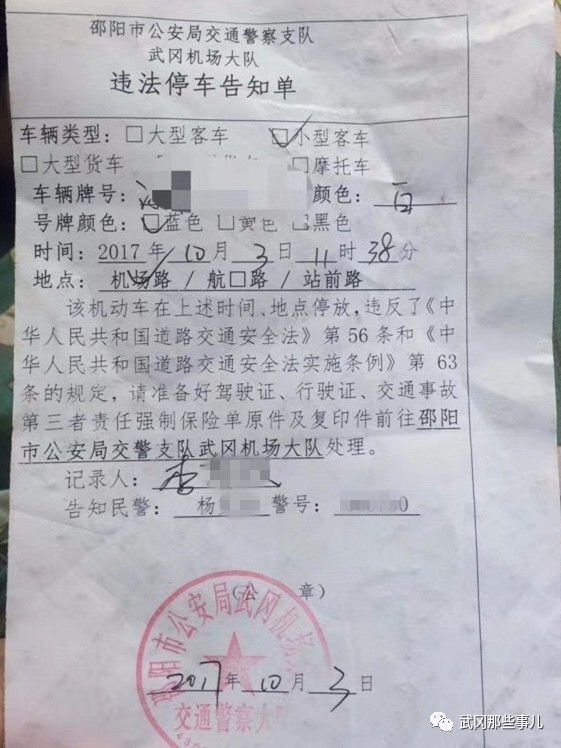 邵阳市公安局交通警察支队
武冈机场大队
违法停车告知单
车辆类型:□大型客车 ☑小型客车
□大型货车 □摩托车
车辆牌号: 颜色:白
号牌颜色:☑蓝色 □黄色 □黑色
时间:2017年10月3日11时38分
地点:机场路 / 航□路 / 站前路
该机动车在上述时间、地点停放,违反了《中
华人民共和国道路交通安全法》第56条和《中
华人民共和国道路交通安全法实施条例》第 63
条的规定,请准备好驾驶证、行驶证、交通事故
第三者责任强制保险单原件及复印件前往邵阳
市公安局交警支队武冈机场大队处理。
记录人:李
告知民警:杨 警号: 0
(公 章)
邵阳市公安局武冈机场
交通警察大队
2017年10月3日
武冈那些事儿